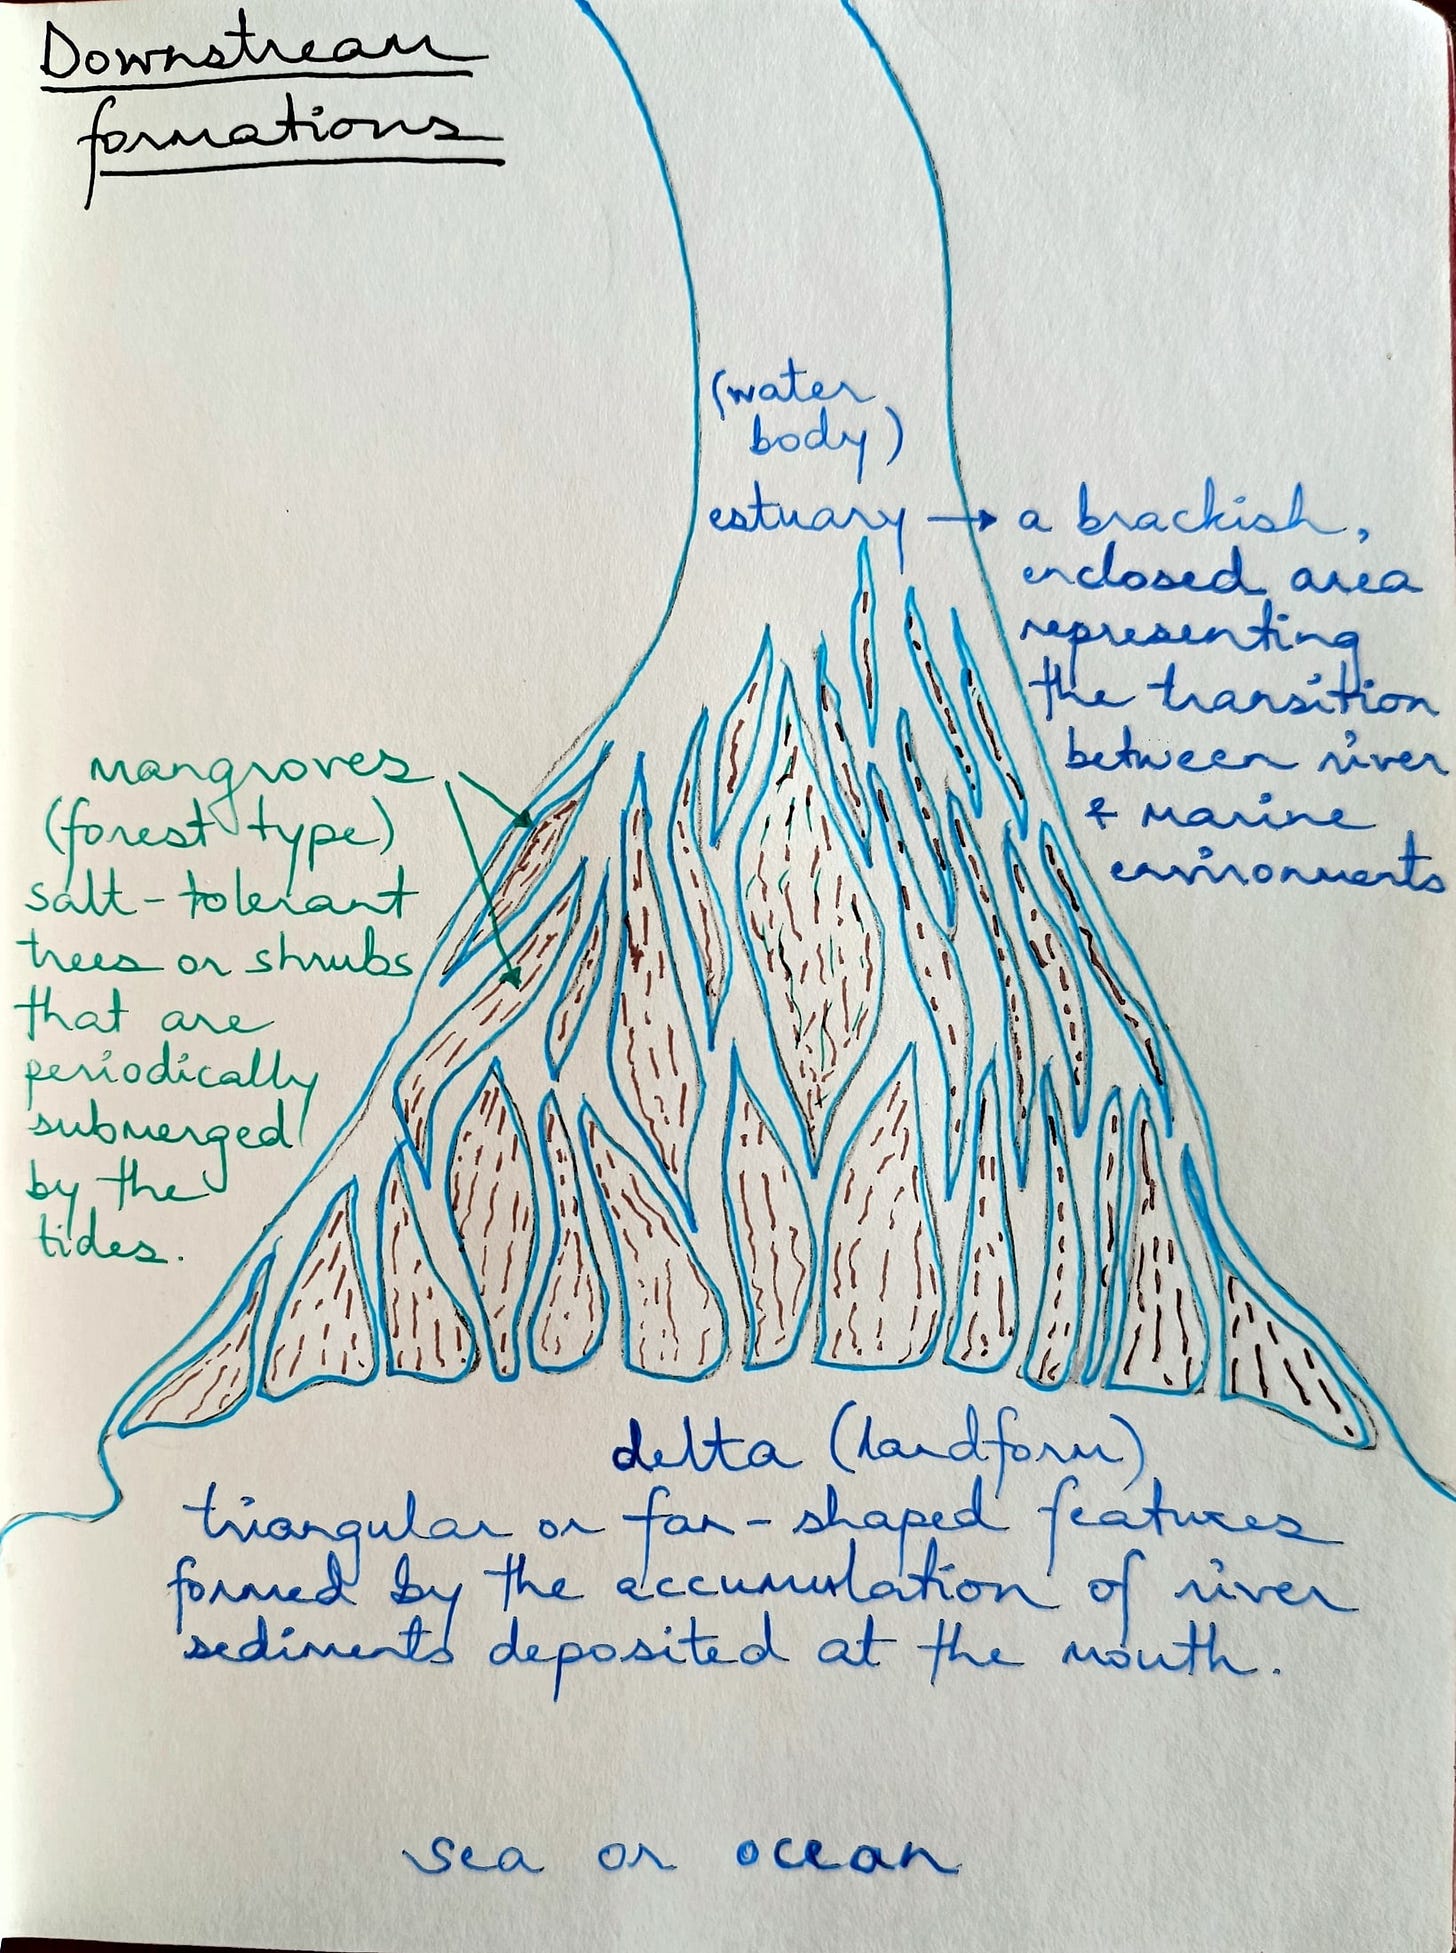 Downstream
formations
(water
body)
estuary → a brackish,
enclosed area
representing
the transition
between river
& marine
environments
mangroves
(forest type)
salt-tolerant
trees or shrubs
that are
periodically
submerged
by the
tides.
delta (landform)
triangular or fan-shaped features
formed by the accumulation of river
sediments deposited at the mouth.
sea or ocean